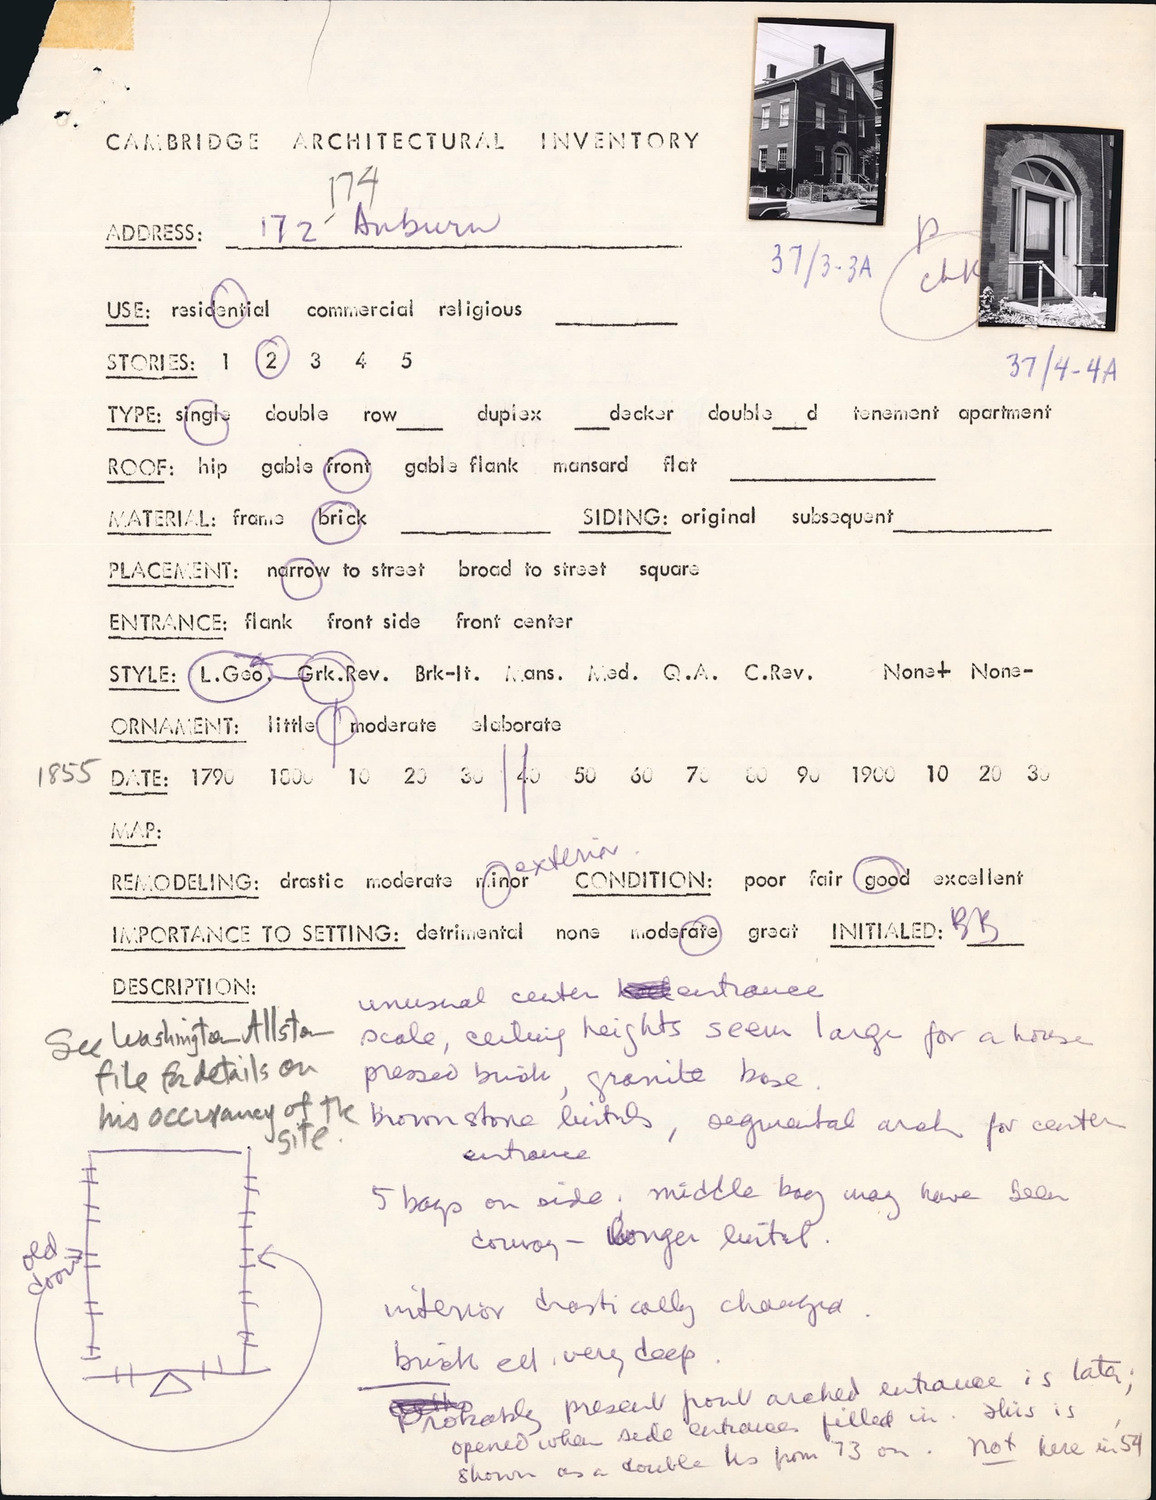 CAMBRIDGE ARCHITECTURAL INVENTORY
174
ADDRESS: 172 Auburn
37/3-3A
P
chk
37/4-4A
USE: residential commercial religious
STORIES: 1 2 3 4 5
TYPE: single double row___ duplex ___decker double___d tenement apartment
ROOF: hip gable front gable flank mansard flat
MATERIAL: frame brick SIDING: original subsequent
PLACEMENT: narrow to street broad to street square
ENTRANCE: flank front side front center
STYLE: L.Geo. Grk.Rev. Brk-It. Mans. Med. Q.A. C.Rev. None+ None-
ORNAMENT: little moderate elaborate
1855 DATE: 1790 1800 10 20 30 40 50 60 70 80 90 1900 10 20 30
MAP:
exterior.
REMODELING: drastic moderate minor CONDITION: poor fair good excellent
IMPORTANCE TO SETTING: detrimental none moderate great INITIALED: BB
DESCRIPTION:
unusual center entrance
scale, ceiling heights seem large for a house
pressed brick, granite base.
brownstone lintels, segmental arch for center
entrance
5 bays on side; middle bay may have been
doorway – longer lintel.
interior drastically changed.
brick ell, very deep.
Probably present front arched entrance is later;
opened when side entrances filled in. This is
shown as a double hs from '73 on. Not here in 54
See Washington Allston
file for details on
his occupancy of the
site.
old
door